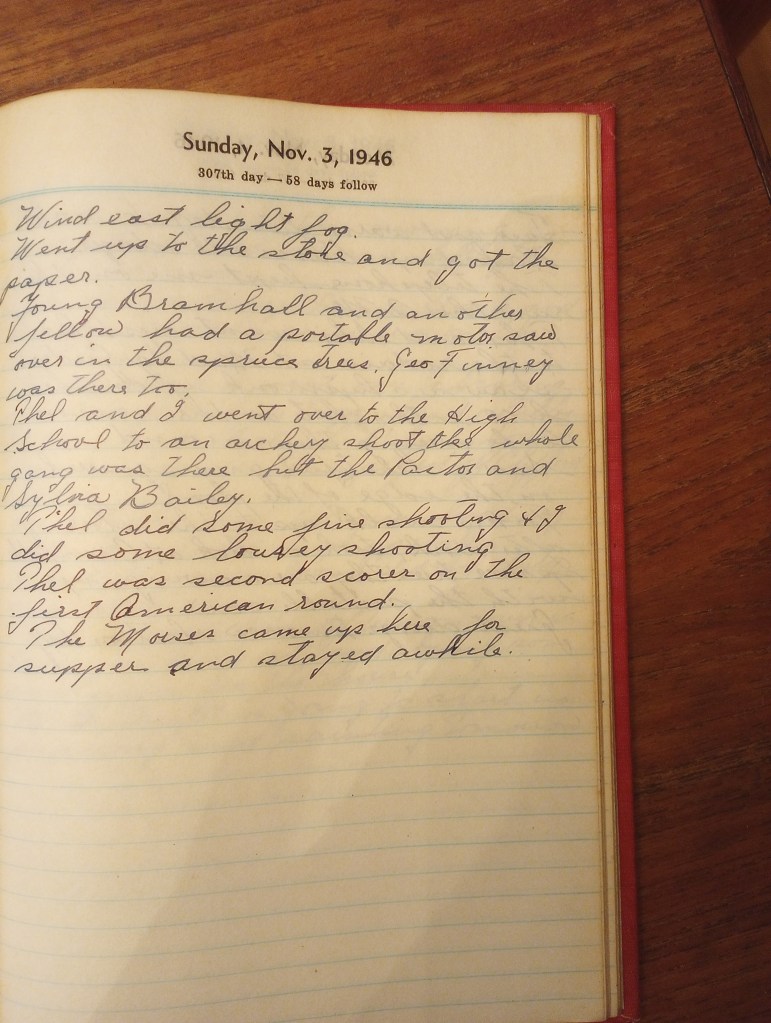 Sunday, Nov. 3, 1946
307th day — 58 days follow
Wind east light fog.
Went up to the store and got the
paper.
Young Bramhall and another
fellow had a portable motor saw
over in the spruce trees. Geo Finney
was there too.
Phel and I went over to the High
School to an archery shoot the whole
gang was there but the Pastor and
Sylvia Bailey.
Phel did some fine shooting & I
did some lousey shooting
Phel was second scorer on the
first American round.
The Morses came up here for
supper and stayed awhile.